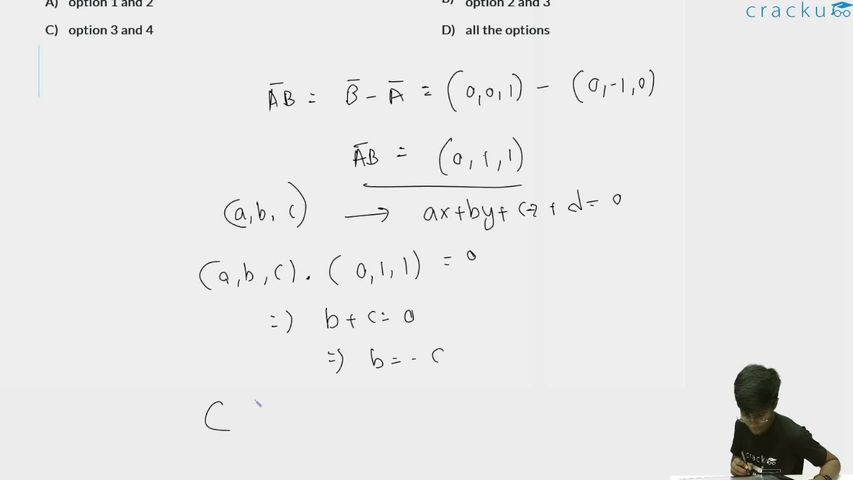 A) option 1 and 2
B) option 2 and 3
cracku
C) option 3 and 4
D) all the options
A̅B = B̅ - A̅ = (0,0,1) - (0,-1,0)
A̅B = (0,1,1)
(a,b,c) → ax+by+cz+d=0
(a,b,c).(0,1,1) = 0
=) b+c=0
=) b=-c
C
cracku